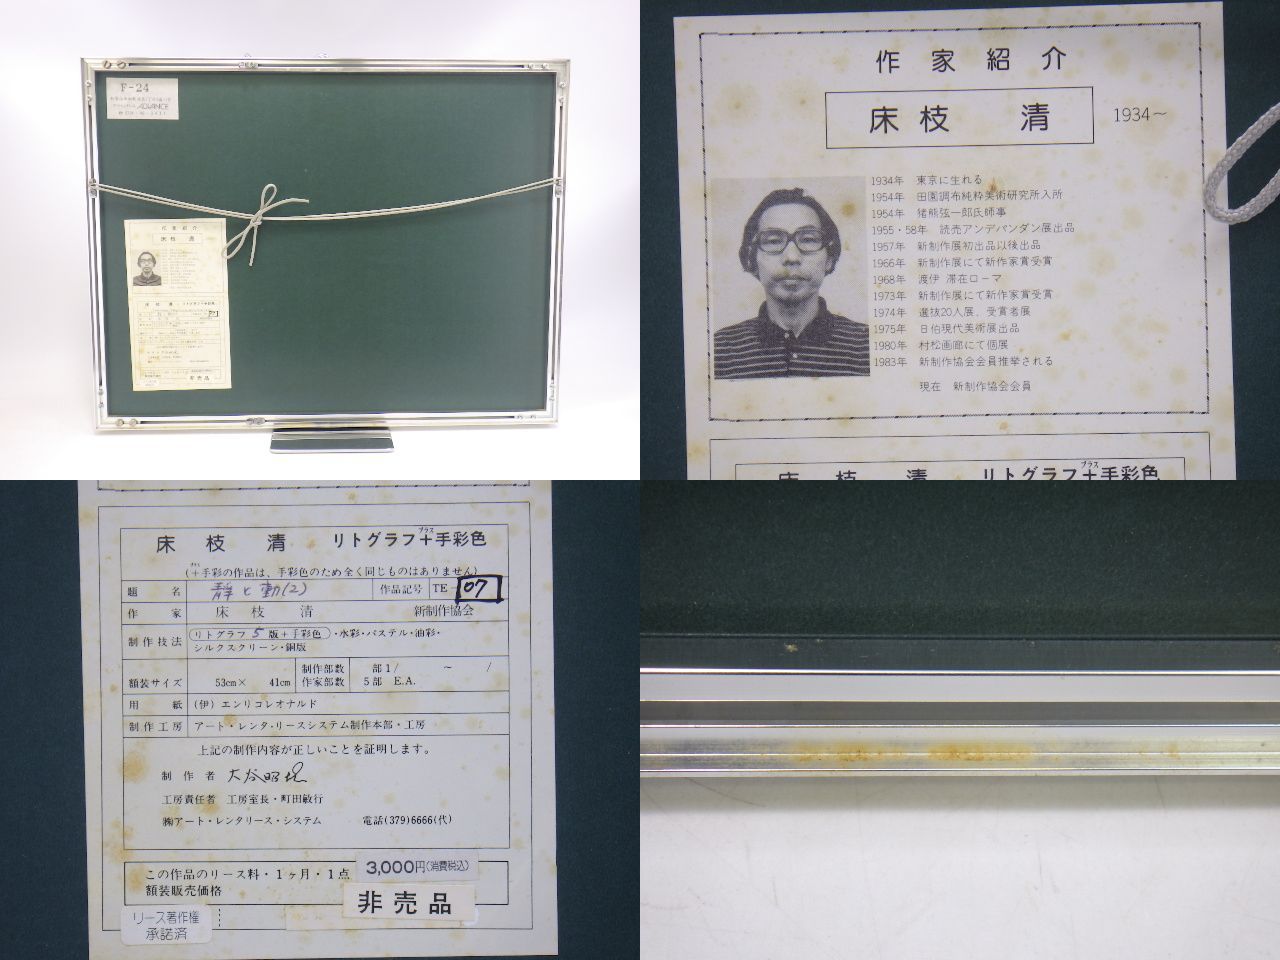 F-24
ADVANCE
作家紹介
床枝 清
非売品
作家紹介
床枝 清
1934～
1934年 東京に生れる
1954年 田園調布純粋美術研究所入所
1954年 猪熊弦一郎氏師事
1955・58年 読売アンデパンダン展出品
1957年 新制作展初出品以後出品
1966年 新制作展にて新作家賞受賞
1968年 渡伊 滞在ローマ
1973年 新制作展にて新作家賞受賞
1974年 選抜20人展、受賞者展
1975年 日伯現代美術展出品
1980年 村松画廊にて個展
1983年 新制作協会会員推挙される
現在 新制作協会会員
床枝 清 リトグラフ＋手彩色
プラス
床枝 清 リトグラフ＋手彩色
プラス
(＋手彩の作品は、手彩色のため全く同じものはありません)
題名 静と動(2) 作品記号 TE 07
作家 床枝 清 新制作協会
制作技法 リトグラフ 5 版＋手彩色・水彩・パステル・油彩・
シルクスクリーン・銅版
制作部数 部1/ ～ /
額装サイズ 53cm× 41cm 作家部数 5部 E.A.
用紙 (伊) エンリコレオナルド
制作工房 アート・レンタ・リースシステム制作本部・工房
上記の制作内容が正しいことを証明します。
制作者
工房責任者 工房室長・町田敏行
㈱アート・レンタリース・システム 電話(379)6666(代)
この作品のリース料・1ヶ月・1点 3,000円(消費税込)
額装販売価格 非売品
リース著作権
承諾済